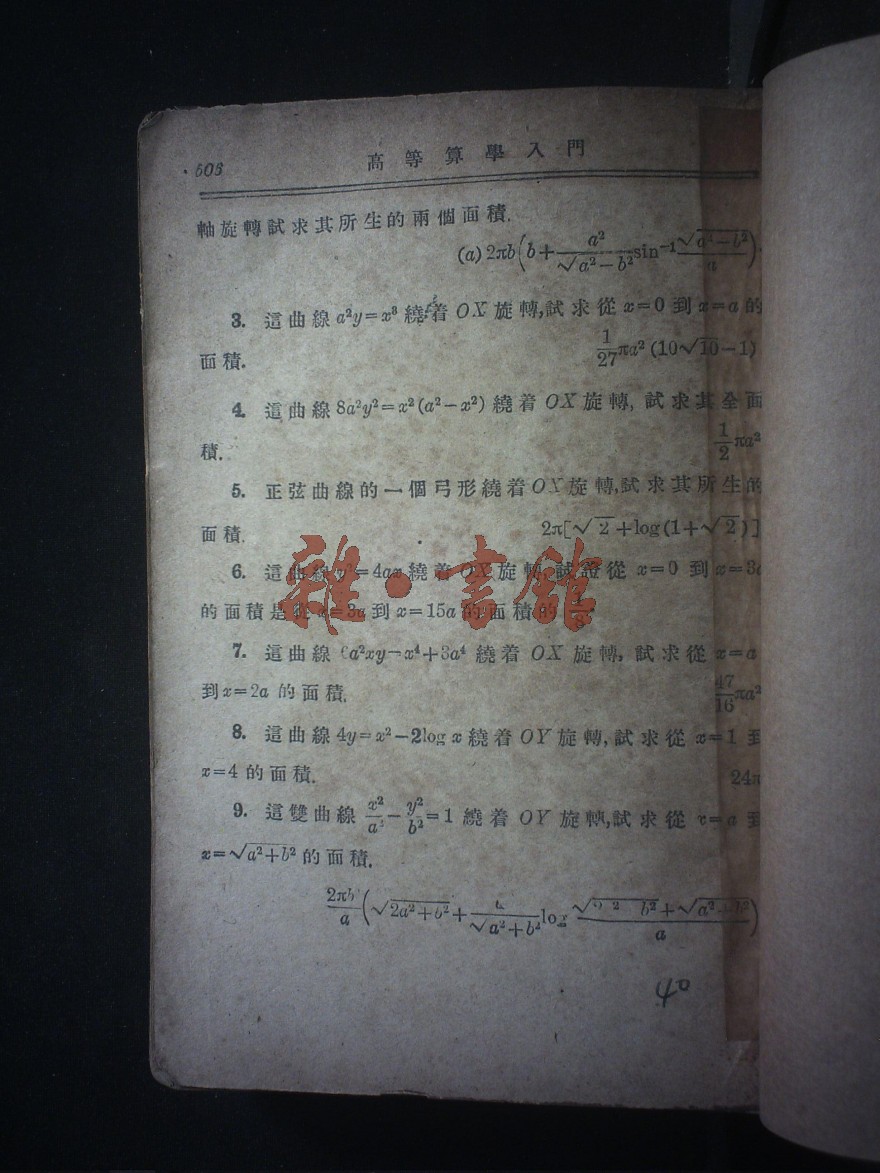 603 高等算學入門
軸旋轉試求其所生的兩個面積.
(a) 2πb(b+a²/√a²−b² sin⁻¹ √a²−b²/a).
3. 這曲線 a²y=x³ 繞着 OX 旋轉,試求從 x=0 到 x=a 的
面積. 1/27 πa² (10√10−1)
4. 這曲線 8a²y²=x²(a²−x²) 繞着 OX 旋轉, 試求其全面
積. 1/2 πa²
5. 正弦曲線的一個弓形繞着 OX 旋轉,試求其所生的
面積. 2π[√2+log(1+√2)]
6. 這曲線 y²=4ax 繞着 OX 旋轉,試證從 x=0 到 x=3a
的面積是從 x=3a 到 x=15a 的面積的
7. 這曲線 a²xy=x⁴+3a⁴ 繞着 OX 旋轉, 試求從 x=a
到 x=2a 的面積. 47/16 πa²
8. 這曲線 4y=x²−2log x 繞着 OY 旋轉,試求從 x=1 至
x=4 的面積. 24π
9. 這雙曲線 x²/a²−y²/b²=1 繞着 OY 旋轉,試求從 x=a 至
x=√a²+b² 的面積.
2πb/a (√2a²+b²+ /√a²+b² log b²+√a² /a)
雜·書館